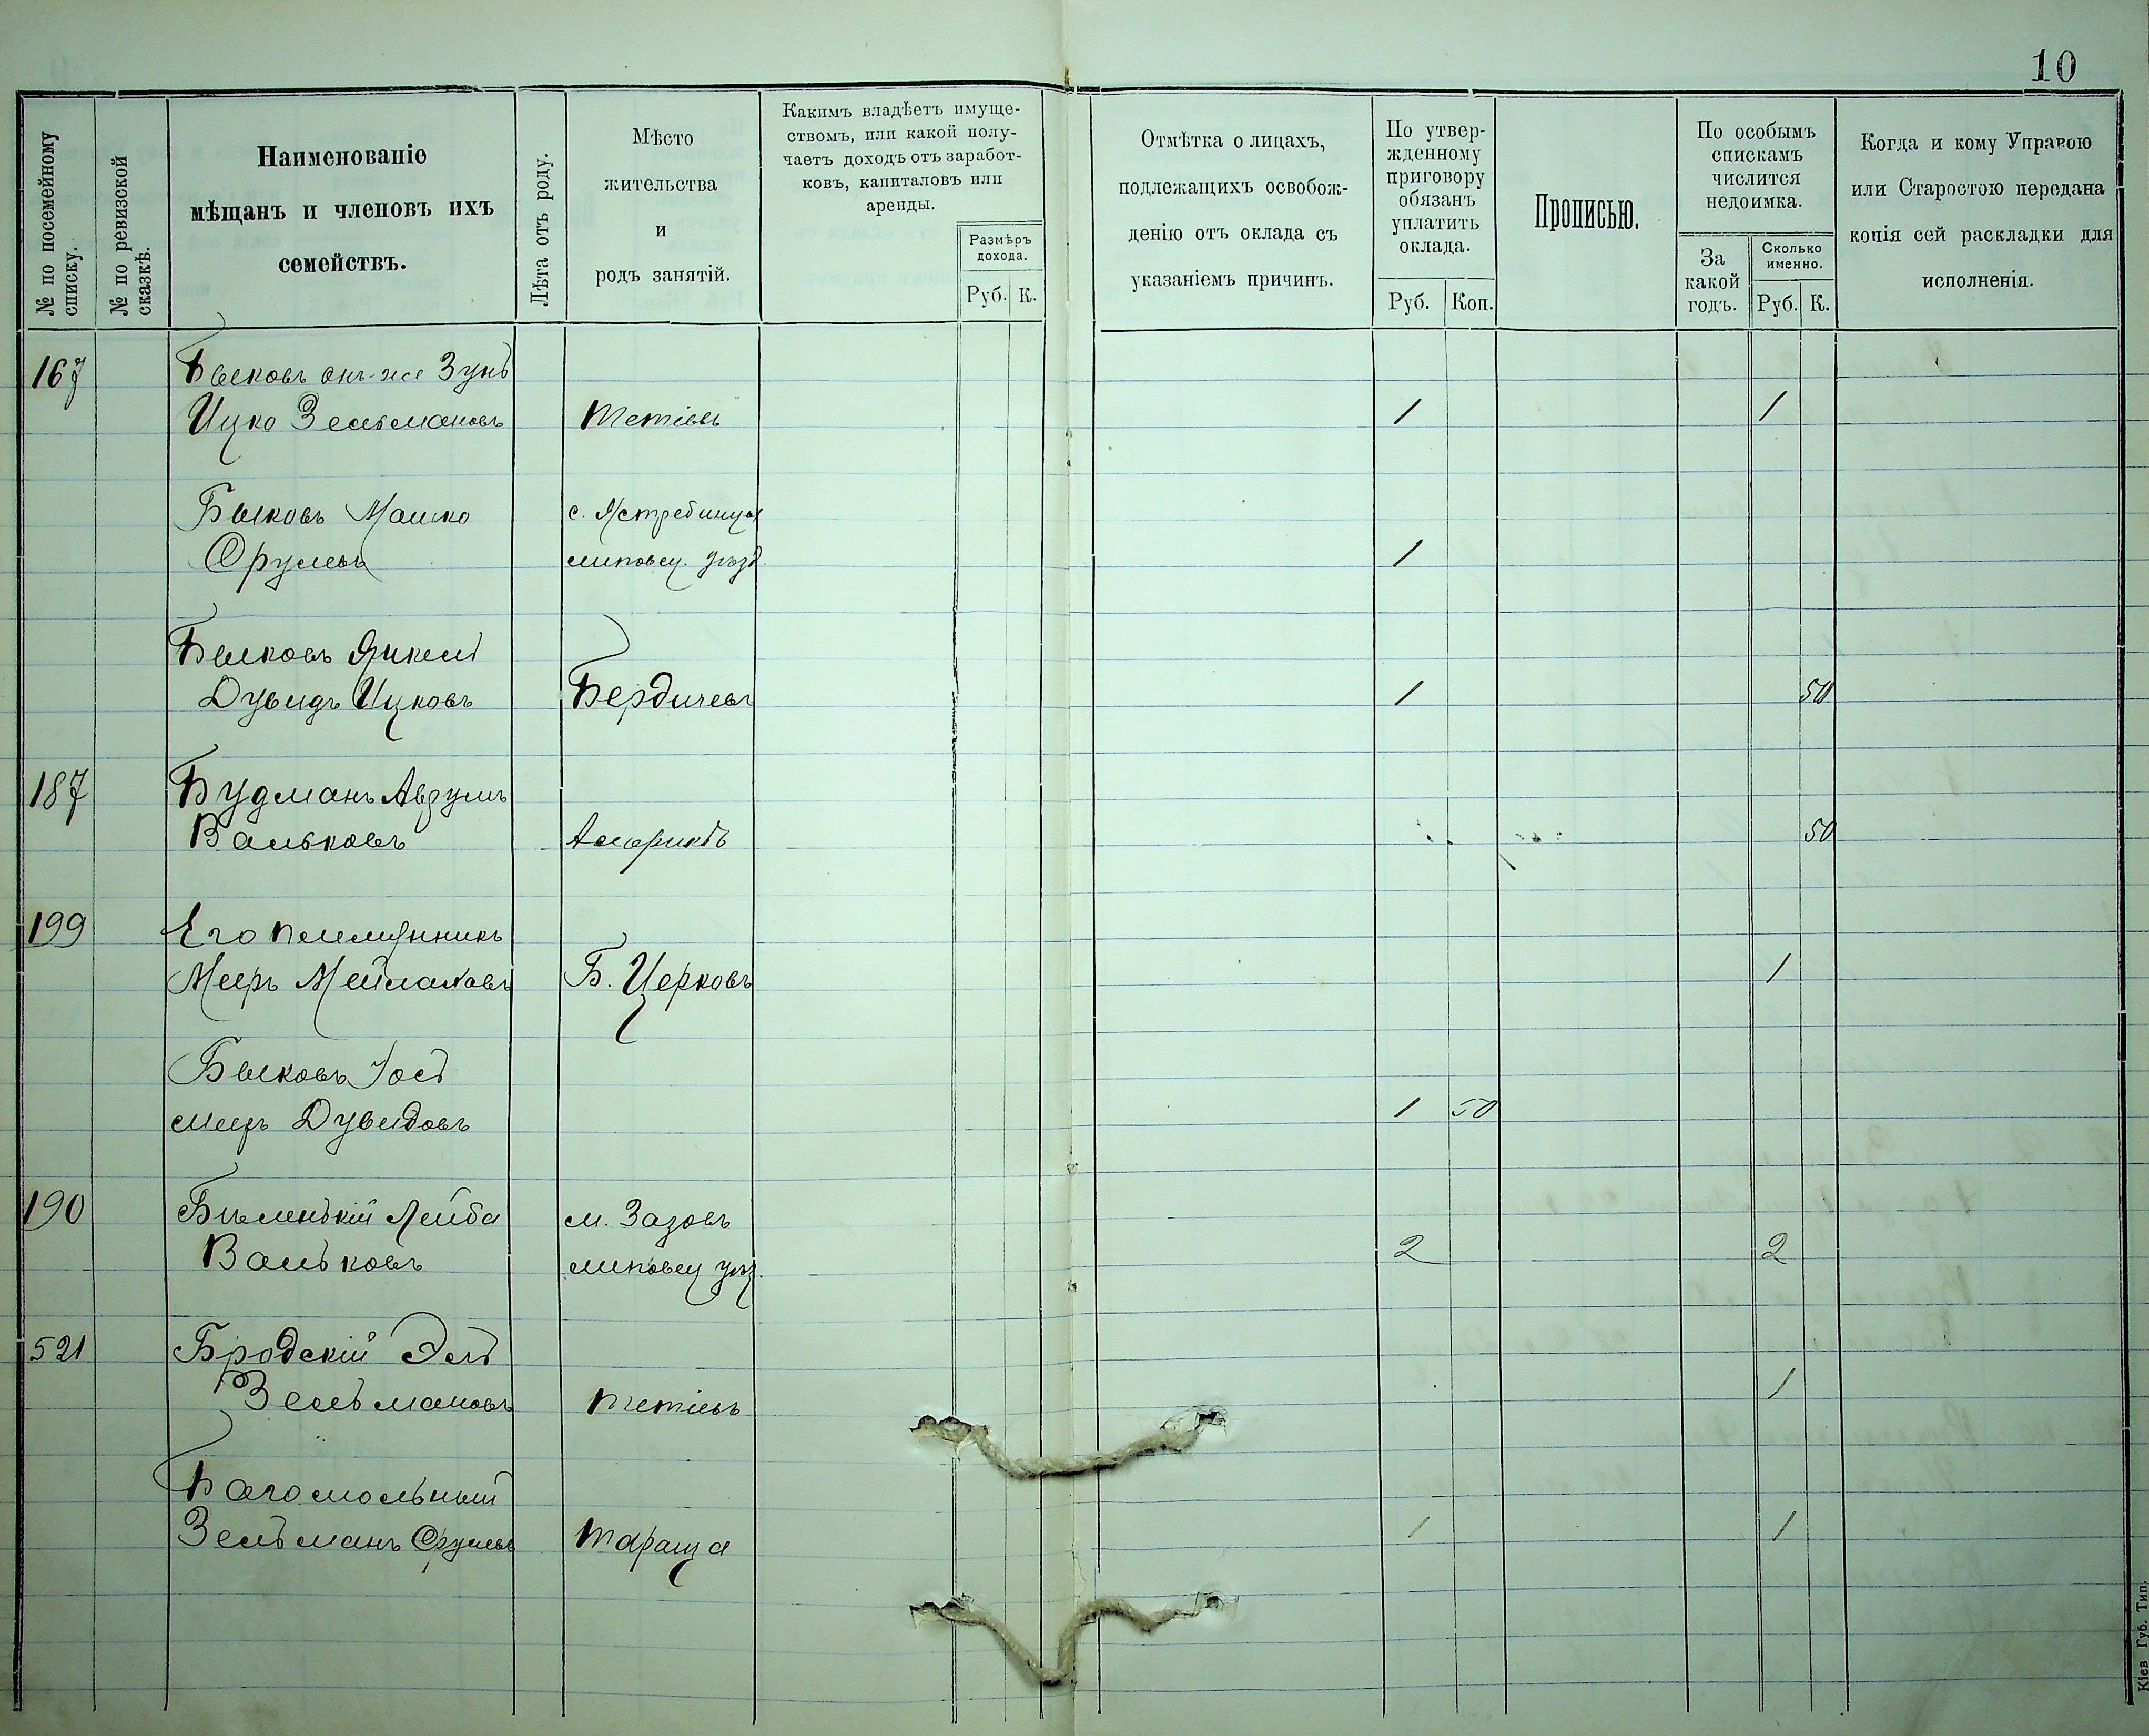 10
№ по посемейному списку.
№ по ревизской сказкѣ.
Наименованіе
мѣщанъ и членовъ ихъ
семействъ.
Лѣта отъ роду.
Мѣсто
жительства
и
родъ занятій.
Какимъ владѣетъ имуще-
ствомъ, или какой полу-
чаетъ доходъ отъ заработ-
ковъ, капиталовъ или
аренды.
Размѣръ
дохода.
Руб. К.
Отмѣтка о лицахъ,
подлежащихъ освобож-
денію отъ оклада съ
указаніемъ причинъ.
По утвер-
жденному
приговору
обязанъ
уплатить
оклада.
Руб. Коп.
Прописью.
По особымъ
спискамъ
числится
недоимка.
За
какой
годъ.
Сколько
именно.
Руб. К.
Когда и кому Управою
или Старостою передана
копія сей раскладки для
исполненія.
167 Быковъ онъ-же Зунъ
Ицко Зельмановъ Тетіевъ 1 1
Быковъ Мошко с. Ястребинцы
Срулевъ липовец. уѣзд. 1
Быковъ Янкель
Дувидъ Ицковъ Бердичевъ 1 50
187 Будманъ Аврумъ
Вальковъ Америкѣ 50
199 Его племянникъ
Мееръ Мейлаховъ Б. Церковъ 1
Быковъ Іось
меер Дувидовъ 1 50
190 Биленькій Лейба м. Зазовъ
Вальковъ липовец уѣз. 2 2
521 Бродскій Эль
Зельмановъ Тетіевъ 1
Богомольный
Зельманъ Срулев Тараща 1 1
Кіев Губ. Тип.